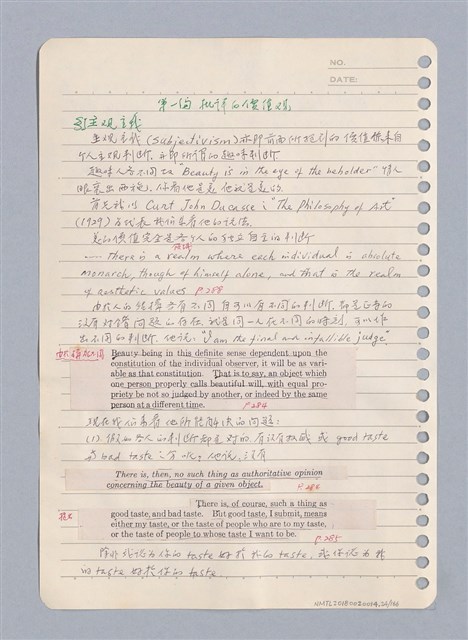 NO.
DATE:
第一編 批評的價值觀
主觀主義
主觀主義 (Subjectivism) 亦即前面所提到的價值係來自
個人主觀判斷, 亦即所謂的趣味判斷
趣味人各不同 "Beauty is in the eye of the beholder" 情人
眼裏出西施, 你看他是美 他就是美的.
首先我以 Curt John Ducasse: "The Philosophy of Art"
(1929) 為代表 我們來看他的說法.
美的價值完全是各个人的独立自主的判断
—— There is a realm where each individual is absolute
monarch, though of himself alone, and that is the realm
of aesthetic values P.288
由於人的結構各有不同 自可以有不同的判断. 都是
没有 問題的存在 就是同一人在不同的時刻, 可以作
出不同的判断. 他說: "I am the final and infallible judge"
Beauty being in this definite sense dependent upon the
constitution of the individual observer, it will be as vari-
able as that constitution. That is to say, an object which
one person properly calls beautiful will, with equal pro-
priety be not so judged by another, or indeed by the same
person at a different time.
P.284
現在我們來看他所能解决的問題:
(1) 假如各人的判断都是对的 有没有 或 good taste
與 bad taste 之分呢? 他說, 没有
There is, then, no such thing as authoritative opinion
concerning the beauty of a given object.
P.286
There is, of course, such a thing as
good taste, and bad taste. But good taste, I submit, means
either my taste, or the taste of people who are to my taste,
or the taste of people to whose taste I want to be.
P.285
除非我認为你的 taste 好於我的 taste, 或你認为我
的 taste 好於你的 taste
NMTL20180020014,24/186